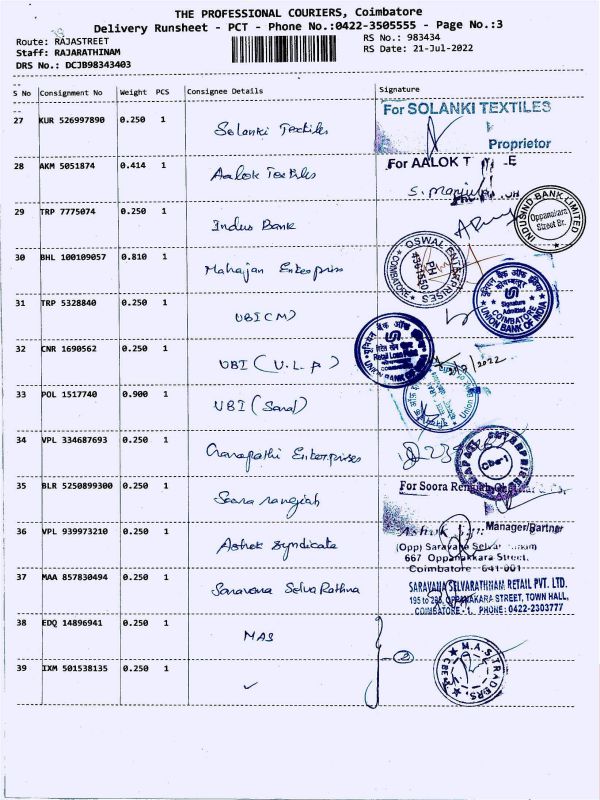 THE PROFESSIONAL COURIERS, Coimbatore
Delivery Runsheet - PCT - Phone No.:0422-3505555 - Page No.:3
Route: RAJASTREET
Staff: RAJARATHINAM
DRS No.: DCJB98343403
RS No.: 983434
RS Date: 21-Jul-2022
S No Consignment No Weight PCS Consignee Details Signature
27 KUR 526997890 0.250 1 Solanki Textiles
For SOLANKI TEXTILES
Proprietor
28 AKM 5051874 0.414 1 Aalok Textiles
For AALOK
29 TRP 7775074 0.250 1 Indus Bank
INDUSIND BANK LIMITED
Oppanakara
Street Br.
30 BHL 100109057 0.810 1 Mahajan Enterprises
OSWAL ENTERPRISES
COIMBATORE
PH
31 TRP 5328840 0.250 1 UBI (M)
यूनियन बैंक ऑफ इंडिया
Signature
Admitted
COIMBATORE
UNION BANK OF INDIA
32 CNR 1690562 0.250 1 UBI (U.L.P)
Retail Loan Point
UNION BANK OF
33 POL 1517740 0.900 1 UBI (Saral)
34 VPL 334687693 0.250 1 Ganapathi Enterprises
Cbe-1
35 BLR 5250899300 0.250 1 Soora rangiah
For Soora
36 VPL 939973210 0.250 1 Ashok Syndicate
Manager/Partner
(Opp) Saravana
667 Oppanakkara Street,
Coimbatore - 641 001
37 MAA 857830494 0.250 1 Saravana Selva Rathna
SARAVANA SELVARATHNAM RETAIL PVT. LTD.
OPPANAKARA STREET, TOWN HALL,
COIMBATORE - 1. PHONE: 0422-2303777
38 EDQ 14896941 0.250 1 MAS
2
M.A.S. TRADERS,
39 IXM 501538135 0.250 1 ✓